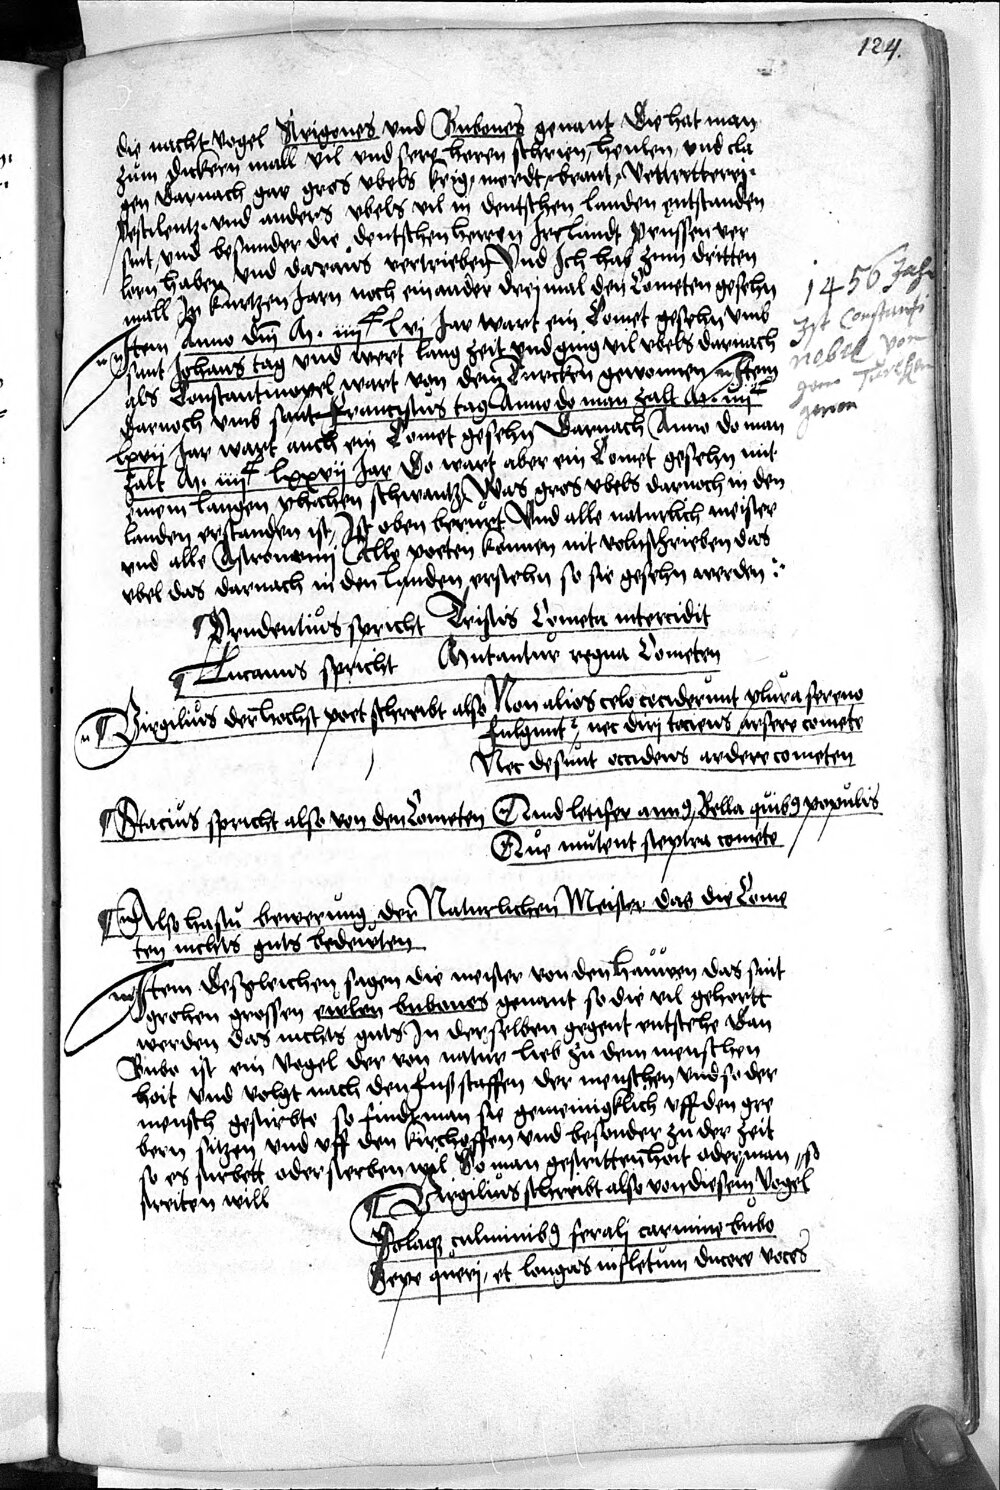 124.
die nacht vogel Strigones und Bubones genant Die hat man
zum dickern mall vil und sere horen schrien, heulen, und cla
gen Darnach gar gros ubels krig, mordt, brant, Vettretterey
Pestilentz und anders ubels vil in deutschen landen entstanden
sint, und besunder die deutschen herren Ire landt Preussen ver
lorn haben und daraus vertrieben Und Ich hab zum dritten
mall In kurtzen Jarn noch einander drey mal den Cometen gesehn
Item Anno dni M. iiii C lvi Jar wart ein Comet gesehn umb
sant Johans tag und wert lang zeit und ging vil ubels darnach
als Constantinopel wart von dem Turcken gewonnen Item
Darnoch umb sant Franciscus tag Anno do man zalt M. iiii C
lxvii Jar wart auch ein Comet gesehn Darnach Anno do man
zalt M. iiii C lxxvii Jar Do wart aber ein Comet gesehn mit
einem langen schwantz, Was gros ubels darnoch in den
landen erstanden ist, Ist oben berurt Und alle naturlich meister
und alle Astronomii Alle poeten konnen nit volnschrieben das
ubel das darnach in den landen erstehn so sie gesehn werden :
1456 Jahr
Ist Constanti
nobel vom
Prudentius spricht Tristis Cometa intercidit
Lucanus spricht Mutantur regna Cometen
Virgilius der hochst poet schreibt also Non alios celo ceciderunt plura sereno
Fulgura nec diri tociens arsere comete
Nec desunt occidens ardere cometen
Stacius spricht also von den Cometen Quid letifer annus, Bella quibus populis
Que mutent sceptra comete
Also hastu bewerung der Naturlichen Meister das die Come
ten nichts guts bedeuten
Item Desgleichen sagen die meister von den hauwen das sint
grohen grossen ewlen bubones genant so die vil gehortt
werden das nichts guts In derselben gegent entstehe Dan
Bubo ist ein Vogel der von natur lieb zu dem menschen
hoit und volgt nach den fusstaffen der menschen und so der
mensch gestirbte so findt man sie gemeinigklich uff den gre
bern sitzen und uff den kirchoffen und besonder zu der zeit
so es sterbett oder sterben wil So man gestritten hoit oder man so
streiten will
Virgilius schreibt also von diesem Vogel
Solaque culminibus ferali carmine bubo
Sepe queri, et longas in fletum ducere voces